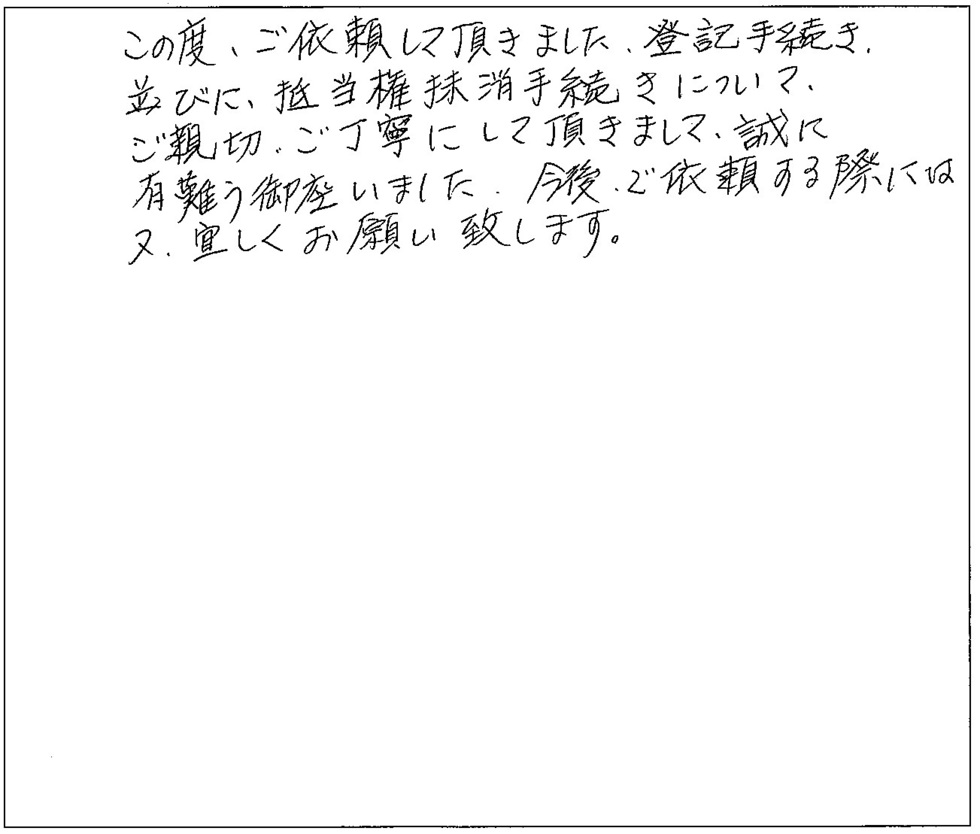 この度、ご依頼して頂きました、登記手続き、
並びに、抵当権抹消手続きについて、
ご親切、ご丁寧にして頂きまして、誠に
有難う御座いました。今後、ご依頼する際には
又、宜しくお願い致します。